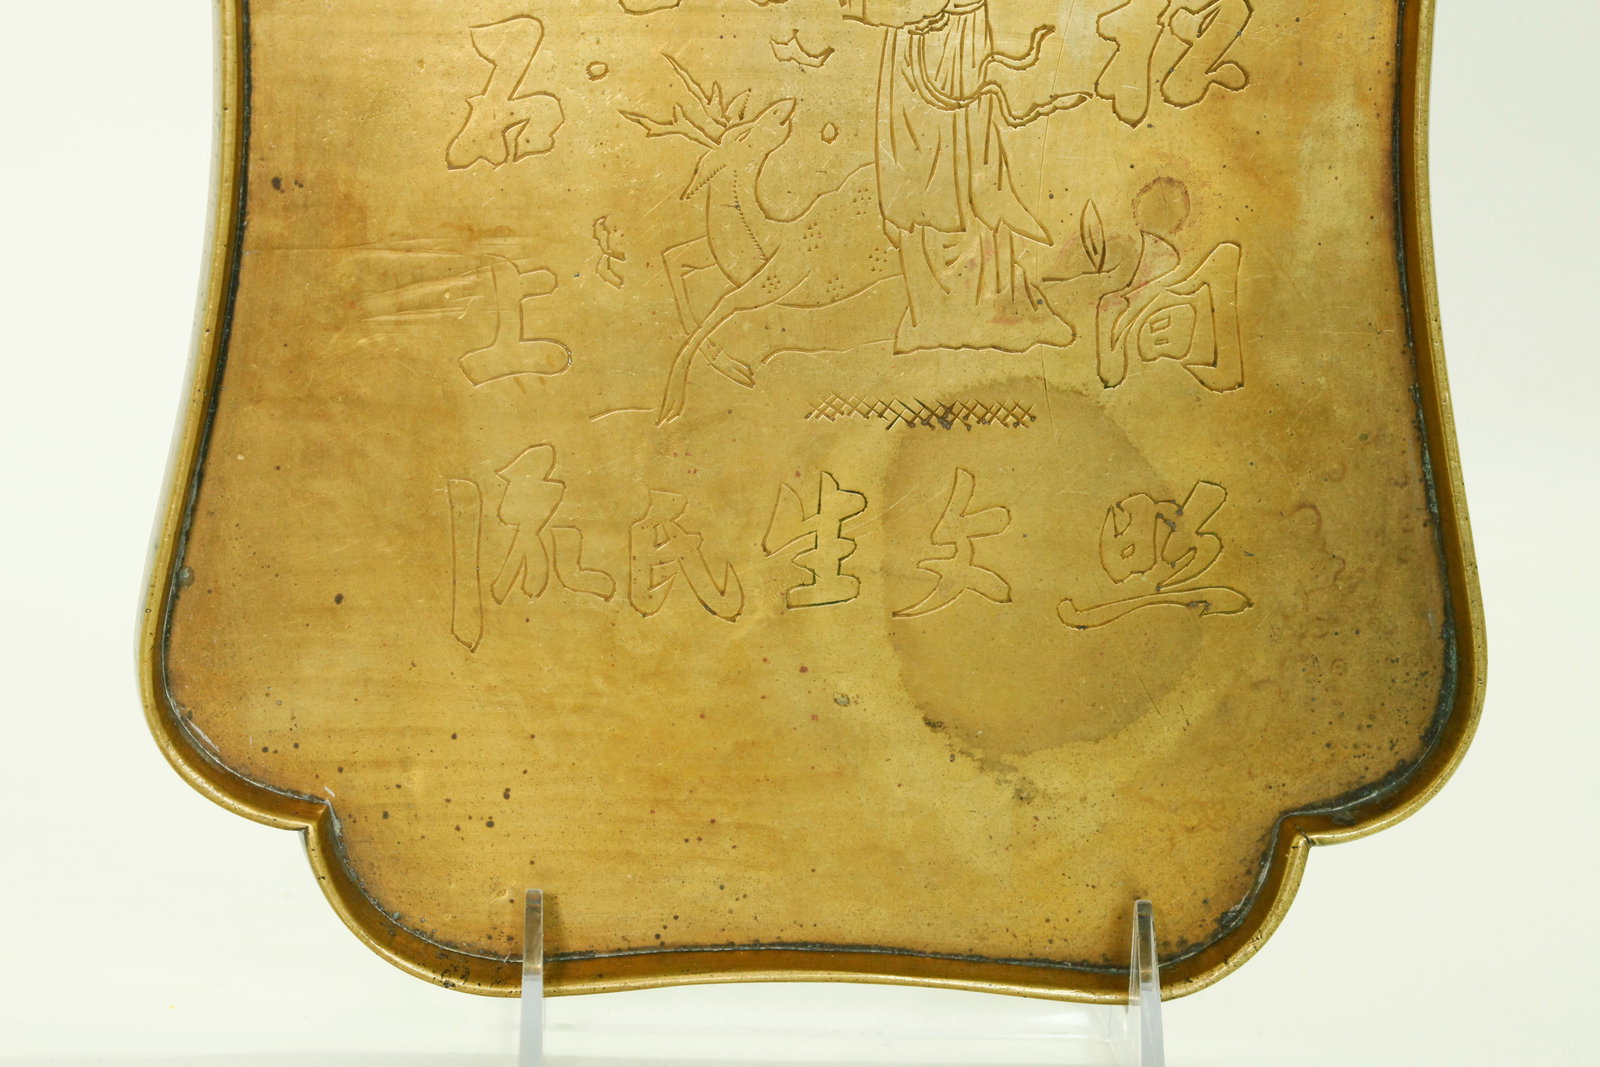 松間照
文生氏
石上流